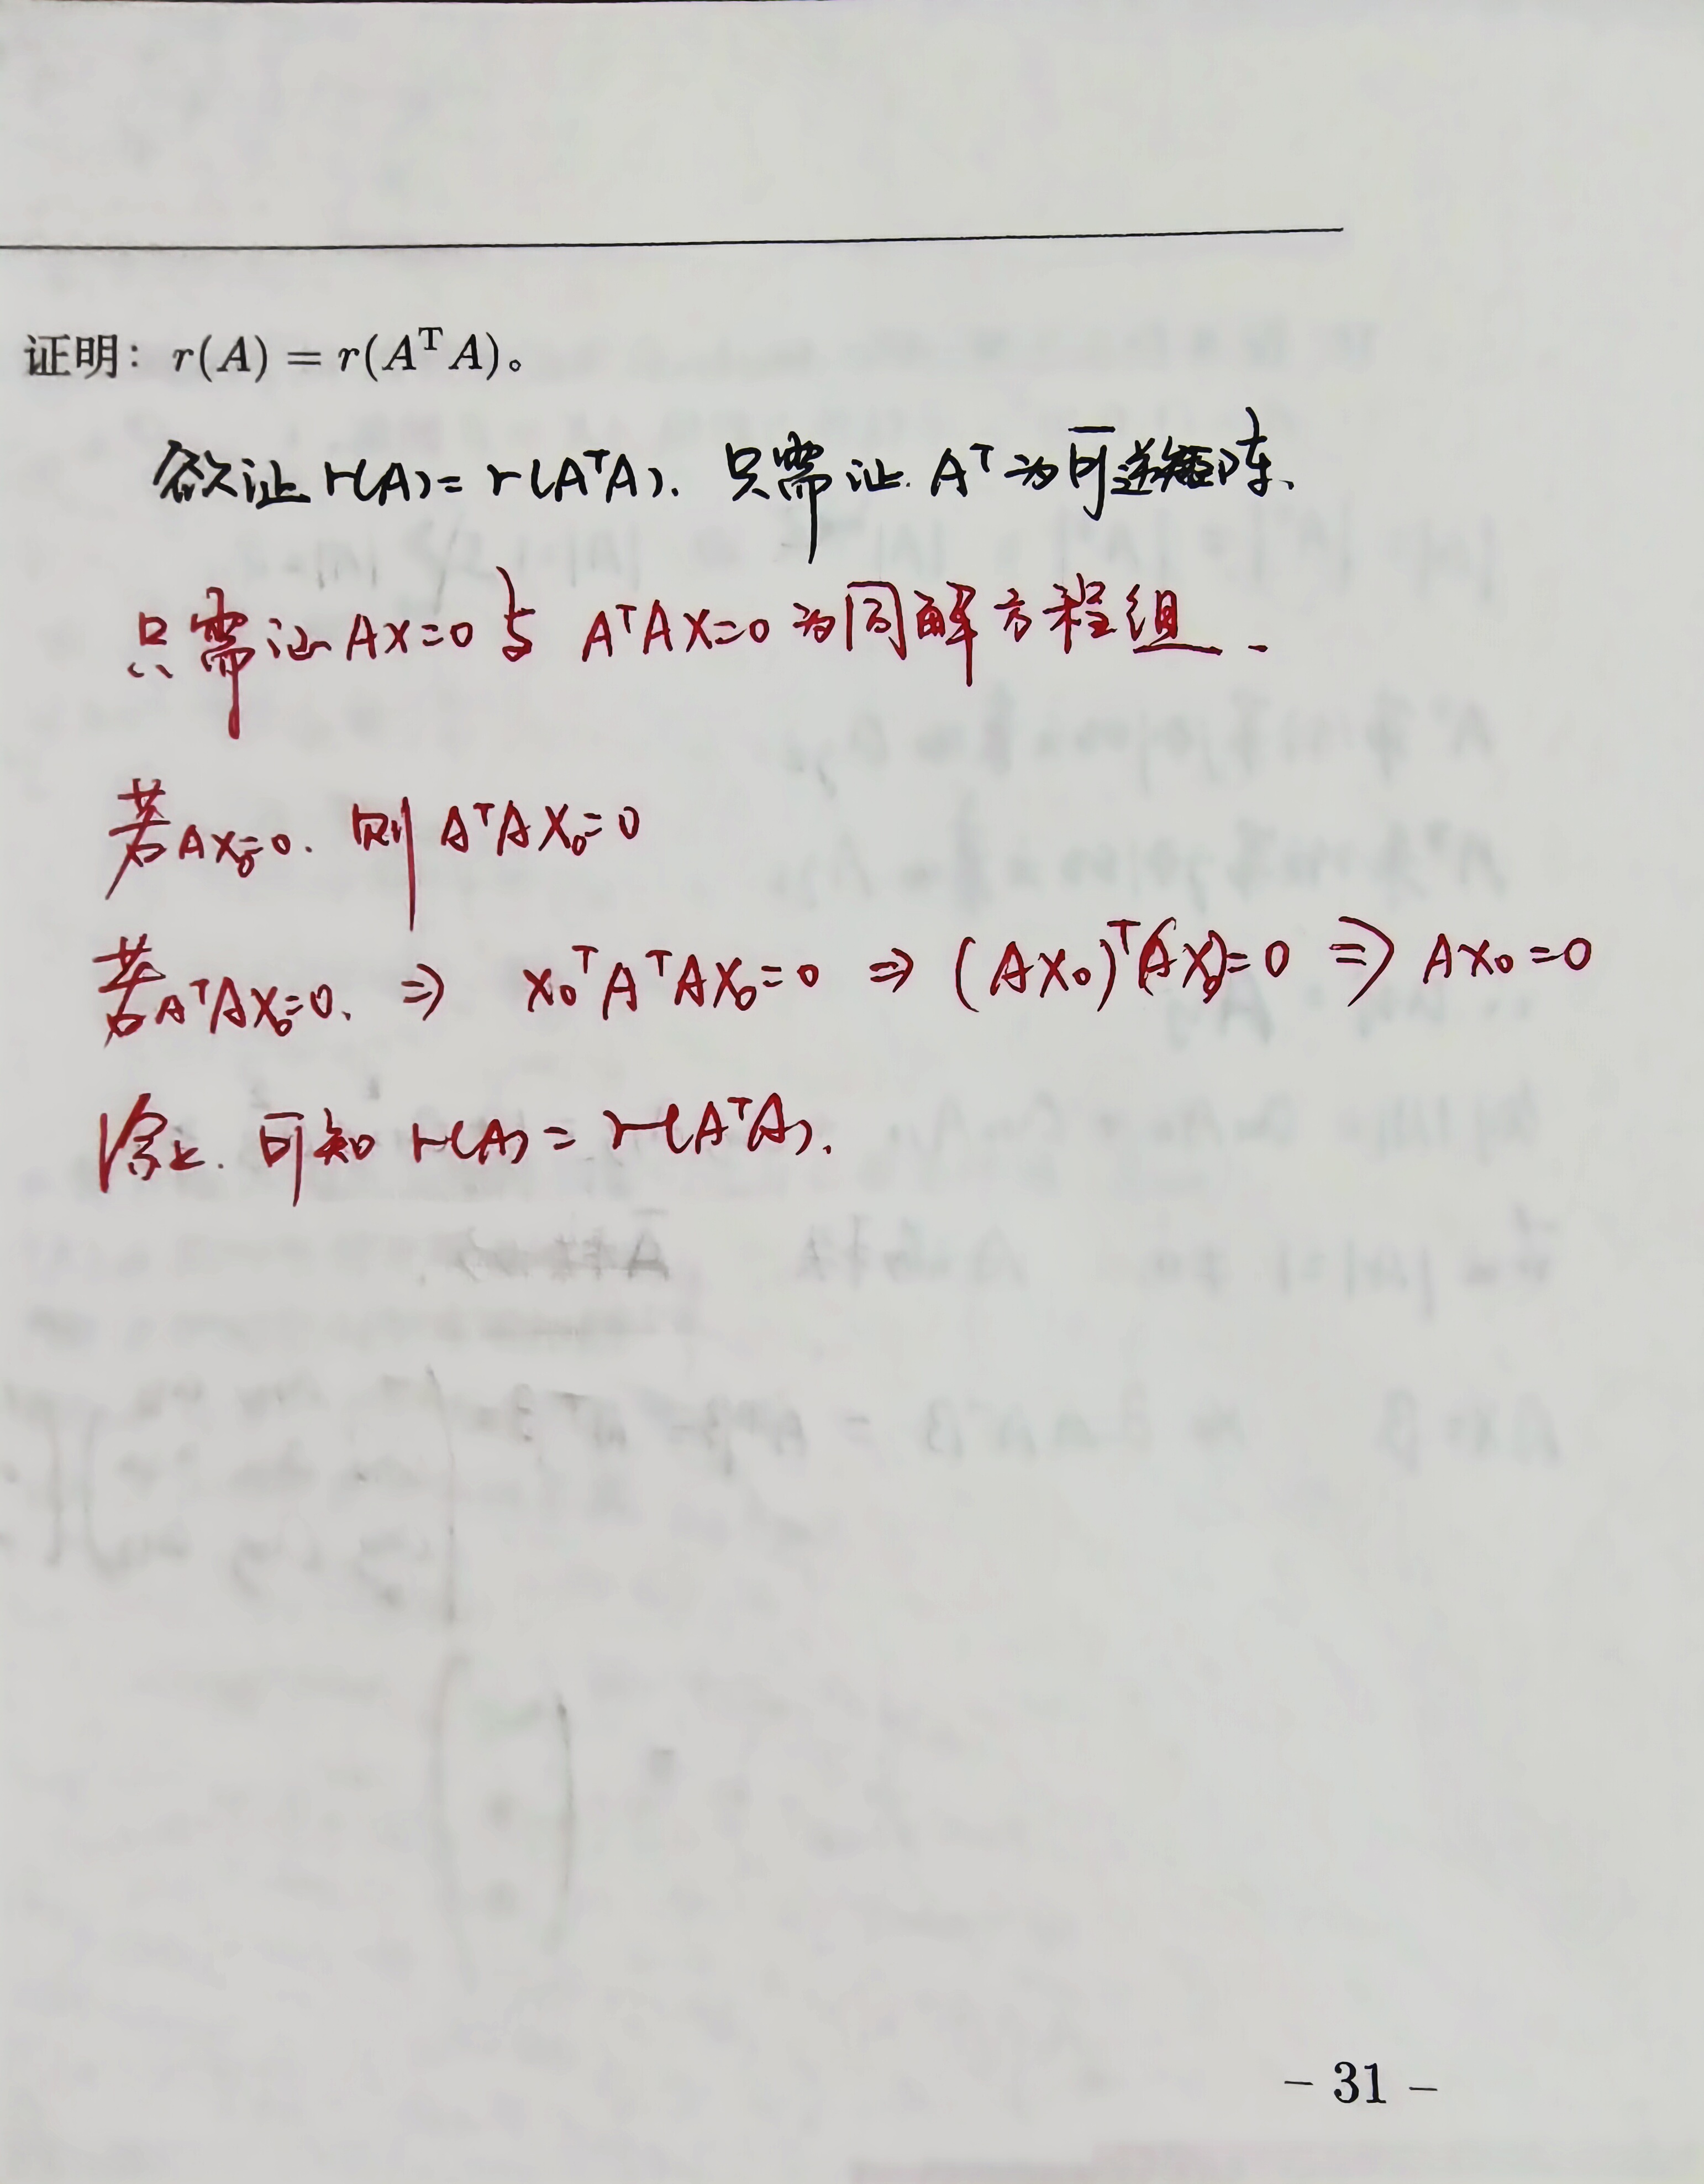 证明：r(A) = r(AᵀA)。
欲证 r(A) = r(AᵀA). 只需证 Aᵀ 为可逆矩阵.
只需证 AX=0 与 AᵀAX=0 为同解方程组.
若AX₀=0. 则 AᵀAX₀=0
若AᵀAX₀=0. ⇒ X₀ᵀAᵀAX₀=0 ⇒ (AX₀)ᵀ(AX₀)=0 ⇒ AX₀=0
综上. 可知 r(A) = r(AᵀA).
- 31 -